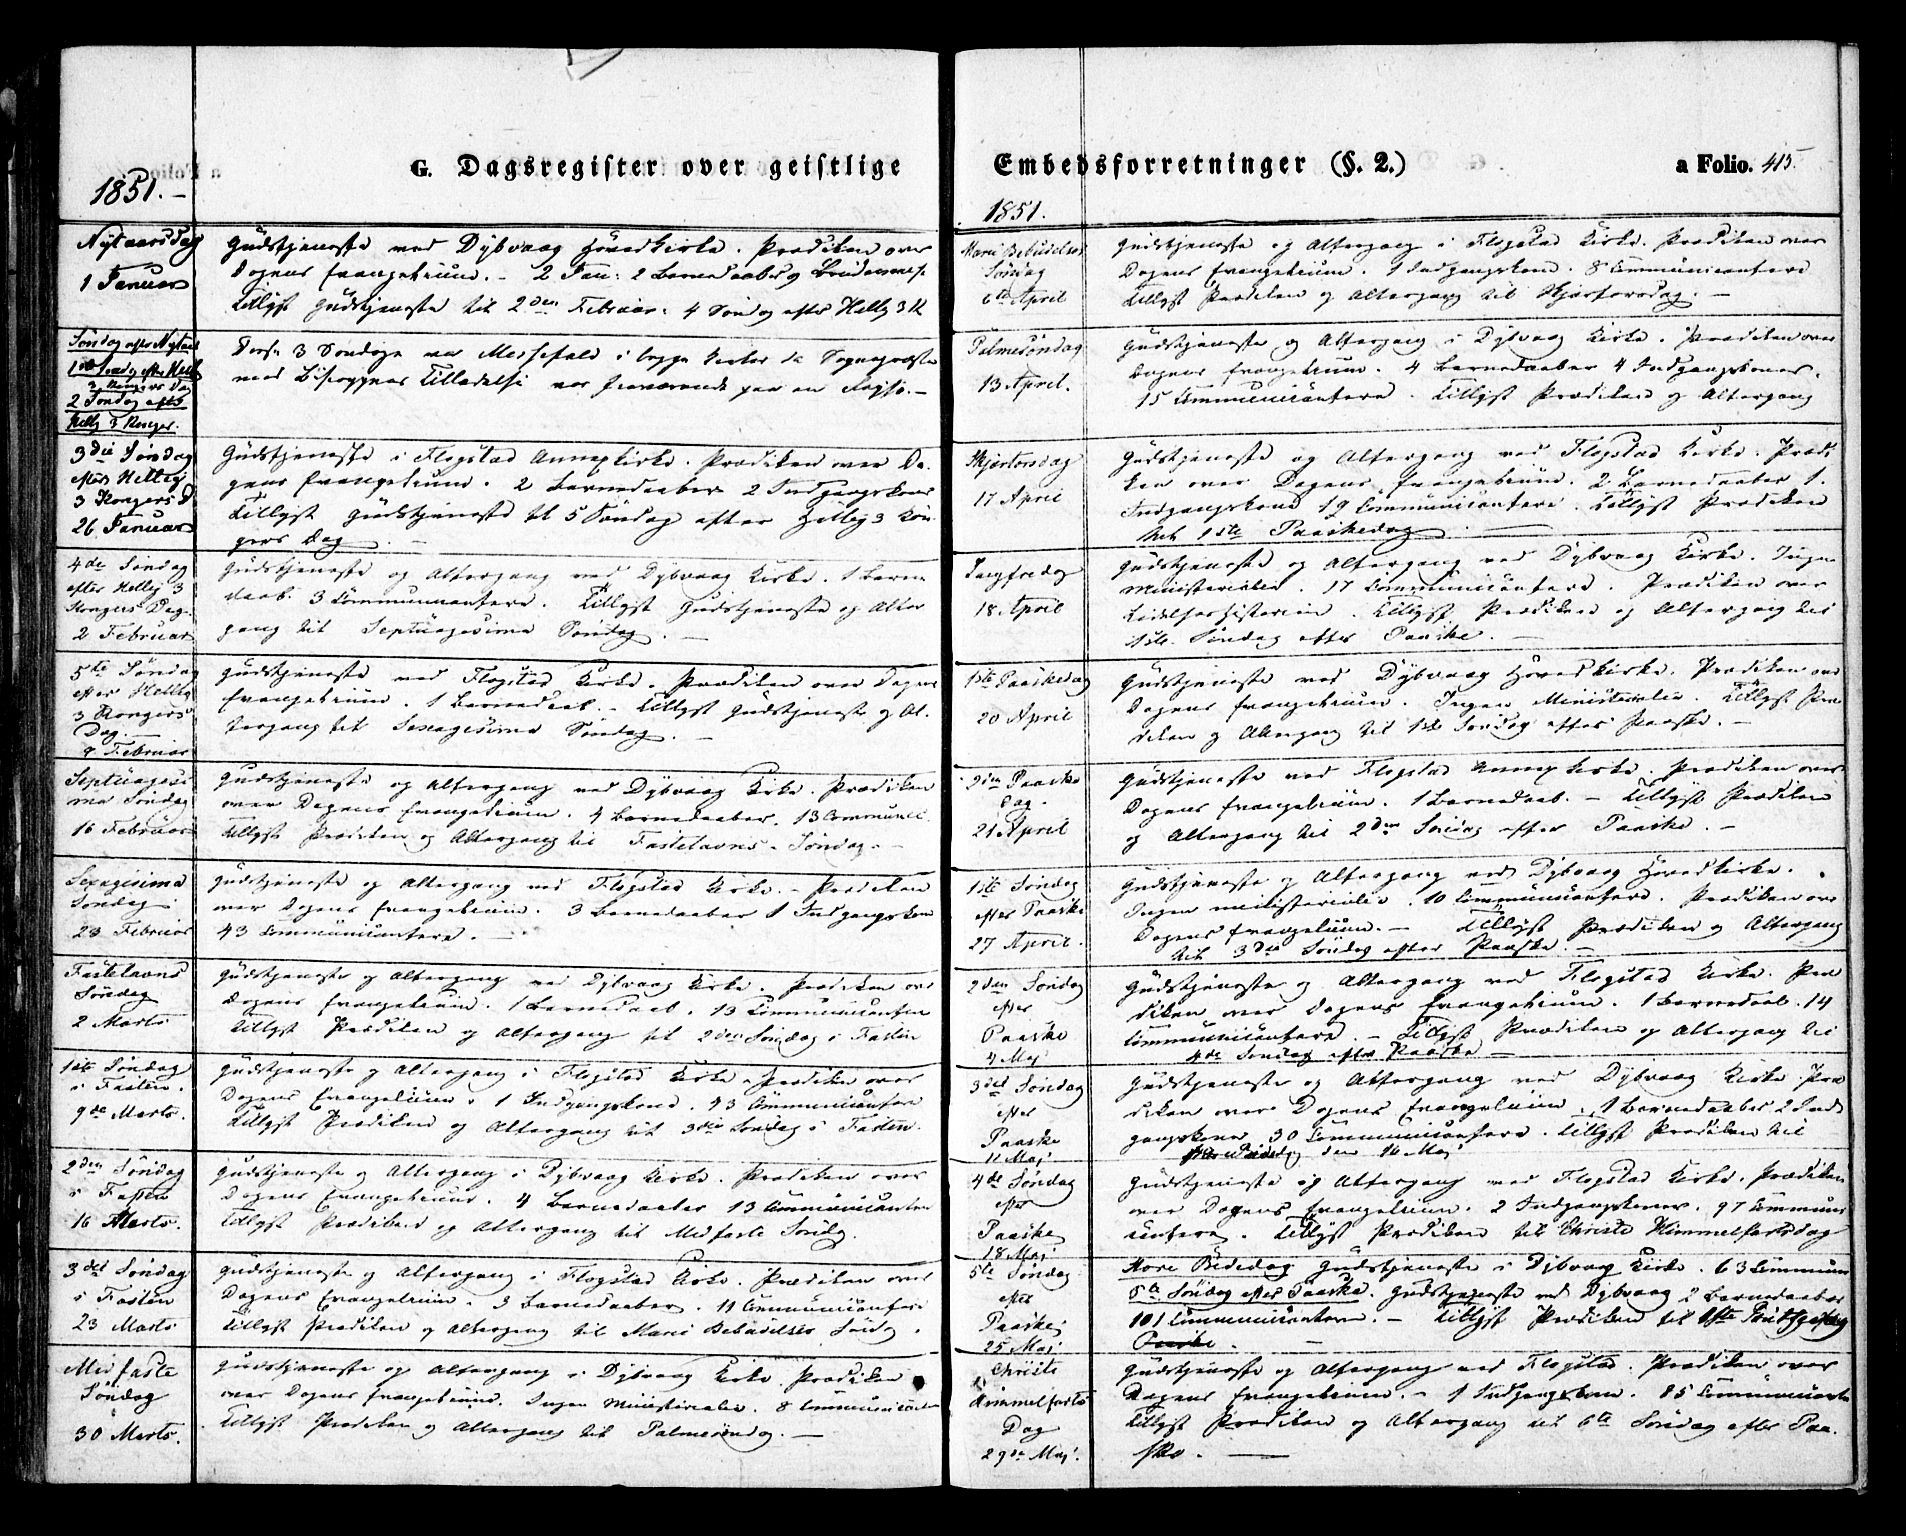 G. Dagsregister over geistlige
1851.-
Nytaarsdag
1 Januar
Gudstjeneste ved Dybvaag Hovedkirke. Prædiken over
Dagens Evangelium. - 2 Jan: 2 Barnedaaber
Tillyst Gudstjeneste til 2den Februar: 4 Søndag efter Hellig 3 K
Søndag efter Nytaar
1ste Søndag efter Hellig
3 Kongers Dag
2 Søndag efter
Hellig 3 Konger.
Disse 3 Søndage var Messefald i begge Kirker da Sognepræsten
med Biskoppens Tilladelse var fraværende paa en Rejse.-
3die Søndag
efter Hellig
3 Kongers D
26 Januar
Gudstjeneste i Flogstad Annexkirke. Prædiken over Da-
gens Evangelium. 2 Barnedaaber 2 Indgangskoner
Tillyst Gudstjeneste til 5 Søndag efter Hellig 3 Kon-
gers Dag. -
4de Søndag
efter Hellig 3
Kongers Dag.
2 Februar
Gudstjeneste og Altergang ved Dybvaag Kirke. 1 Barne
daab. 3 Communicantere. Tillyst Gudstjeneste og Alter
gang til Septuagesima Søndag. -
5te Søndag
efter Hellig
3 Kongers
Dag. -
9 Februar
Gudstjeneste ved Flogstad Kirke. Prædiken over Dagens
Evangelium. 1 Barnedaab. - Tillyst Gudstjeneste og Al-
tergang til Sexagesima Søndag. -
Septuagesi
ma Søndag
16 Februar
Gudstjeneste og Altergang ved Dybvaag Kirke. Prædiken
over Dagens Evangelium. 4 Barnedaaber. 13 Communic.
Tillyst Prædiken og Altergang til Fastelavns-Søndag. -
Sexagesima
Søndag.
23 Februar
Gudstjeneste og Altergang ved Flogstad Kirke. - Prædiken
over Dagens Evangelium. 3 Barnedaaber 1 Indgangskone
43 Communicantere. -
Fastelavns
Søndag
2 Marts
Gudstjeneste og Altergang ved Dybvaag Kirke. Prædiken over
Dagens Evangelium. 1 Barnedaab. 13 Communicantere
Tillyst Prædiken og Altergang til 2den Søndag i Fasten
1ste Søndag
i Fasten.
9de Marts.
Gudstjeneste og Altergang i Flogstad Kirke. Prædiken over
Dagens Evangelium. 1 Indgangskone. 43 Communicantere
Tillyst Prædiken og Altergang til 3die Søndag i Fasten.
2den Søndag
i Fasten
16 Marts.
Gudstjeneste og Altergang i Dybvaag Kirke. Prædiken over
Dagens Evangelium. 4 Barnedaaber 13 Communicantere
Tillyst Prædiken og Altergang til Midfaste Søndag.
3die Søndag
i Fasten
23 Marts
Gudstjeneste og Altergang i Flogstad Kirke. Prædiken over
Dagens Evangelium. 3 Barnedaaber. 11 Communicantere
Tillyst Prædiken og Altergang til Mariæ Bebudelses Søndag.
Midfaste
Søndag
30 Marts.
Gudstjeneste og Altergang i Dybvaag Kirke. Prædiken
over Dagens Evangelium. Ingen Ministerialia. 8 Communicantere
Tillyst Prædiken og Altergang til Palmesøndag. -
Embedsforretninger (§. 2.)
a Folio. 415.
1851.
Mariæ Bebudelses
Søndag
6te April
Gudstjeneste og Altergang i Flogstad Kirke. Prædiken over
Dagens Evangelium. 1 Indgangskone. 8 Communicantere
Tillyst Prædiken og Altergang til Skjærtorsdag. -
Palmesøndag
13 April.
Gudstjeneste og Altergang i Dybvaag Kirke. Prædiken over
Dagens Evangelium. 4 Barnedaaber 4 Indgangskoner.
15 Communicantere. Tillyst Prædiken og Altergang
Skjertorsdag
17 April
Gudstjeneste og Altergang ved Flogstad Kirke. Prædi
ken over Dagens Evangelium. 2 Barnedaaber 1.
Indgangskone 19 Communicantere. Tillyst Prædiken
til 1ste Paaskedag. -
Langfredag
18 April
Gudstjeneste og Altergang ved Dybvaag Kirke. Ingen
Ministerialia. 17 Communicantere. Prædiken over
Lidelseshistorien. Tillyst Prædiken og Altergang til
1ste Søndag efter Paaske. -
1ste Paaskedag
20 April
Gudstjeneste ved Dybvaag Hovedkirke. Prædiken over
Dagens Evangelium. Ingen Ministerialia. Tillyst Præ
diken og Altergang til 1ste Søndag efter Paaske. -
2den Paaske
Dag.
21 April
Gudstjeneste ved Flogstad Annexkirke. Prædiken over
Dagens Evangelium. 1 Barnedaab. - Tillyst Prædiken
og Altergang til 2den Søndag efter Paaske. -
1ste Søndag
efter Paaske
27 April.
Gudstjeneste og Altergang ved Dybvaag Hovedkirke.
Ingen Ministerialia. 10 Communicantere. Prædiken over
Dagens Evangelium. - Tillyst Prædiken og Altergang
til 3die Søndag efter Paaske. -
2den Søndag
efter
Paaske
4 Maj
Gudstjeneste og Altergang ved Flogstad Kirke. Præ
diken over Dagens Evangelium. 1 Barnedaab. 14
Communicantere. - Tillyst Prædiken og Altergang til
4de Søndag efter Paaske -
3die Søndag
efter
Paaske
11 Maj
Gudstjeneste og Altergang ved Dybvaag Kirke. Præ
diken over Dagens Evangelium. 1 Barnedaaber 2 Ind
gangskoner 30 Communicantere. Tillyst Prædiken til
Store Bededag den 16 Maj
4de Søndag
efter
Paaske
18 Maj
Gudstjeneste og Altergang ved Flogstad Kirke. Prædiken
over Dagens Evangelium. 2 Indgangskoner. 97 Communi
cantere. Tillyst Prædiken til Christi Himmelfartsdag
5te Søndag
efter
Paaske
25 Maj
Store Bededag Gudstjeneste i Dybvaag Kirke. 63 Communi
5te Søndag efter Paaske. Gudstjeneste ved Dybvaag 2 Barnedaaber
101 Communicantere. - Tillyst Prædiken til 1ste Pintsedag
Paaske.
Christi
Himmelfarts
Dag
29de Maj.
Gudstjeneste og Altergang ved Flogstad. Prædiken over
Dagens Evangelium. - 1 Indgangskone. 85 Communicante
Tillyst Prædiken og Altergang til 6te Søndag efter Paa-
ske. -